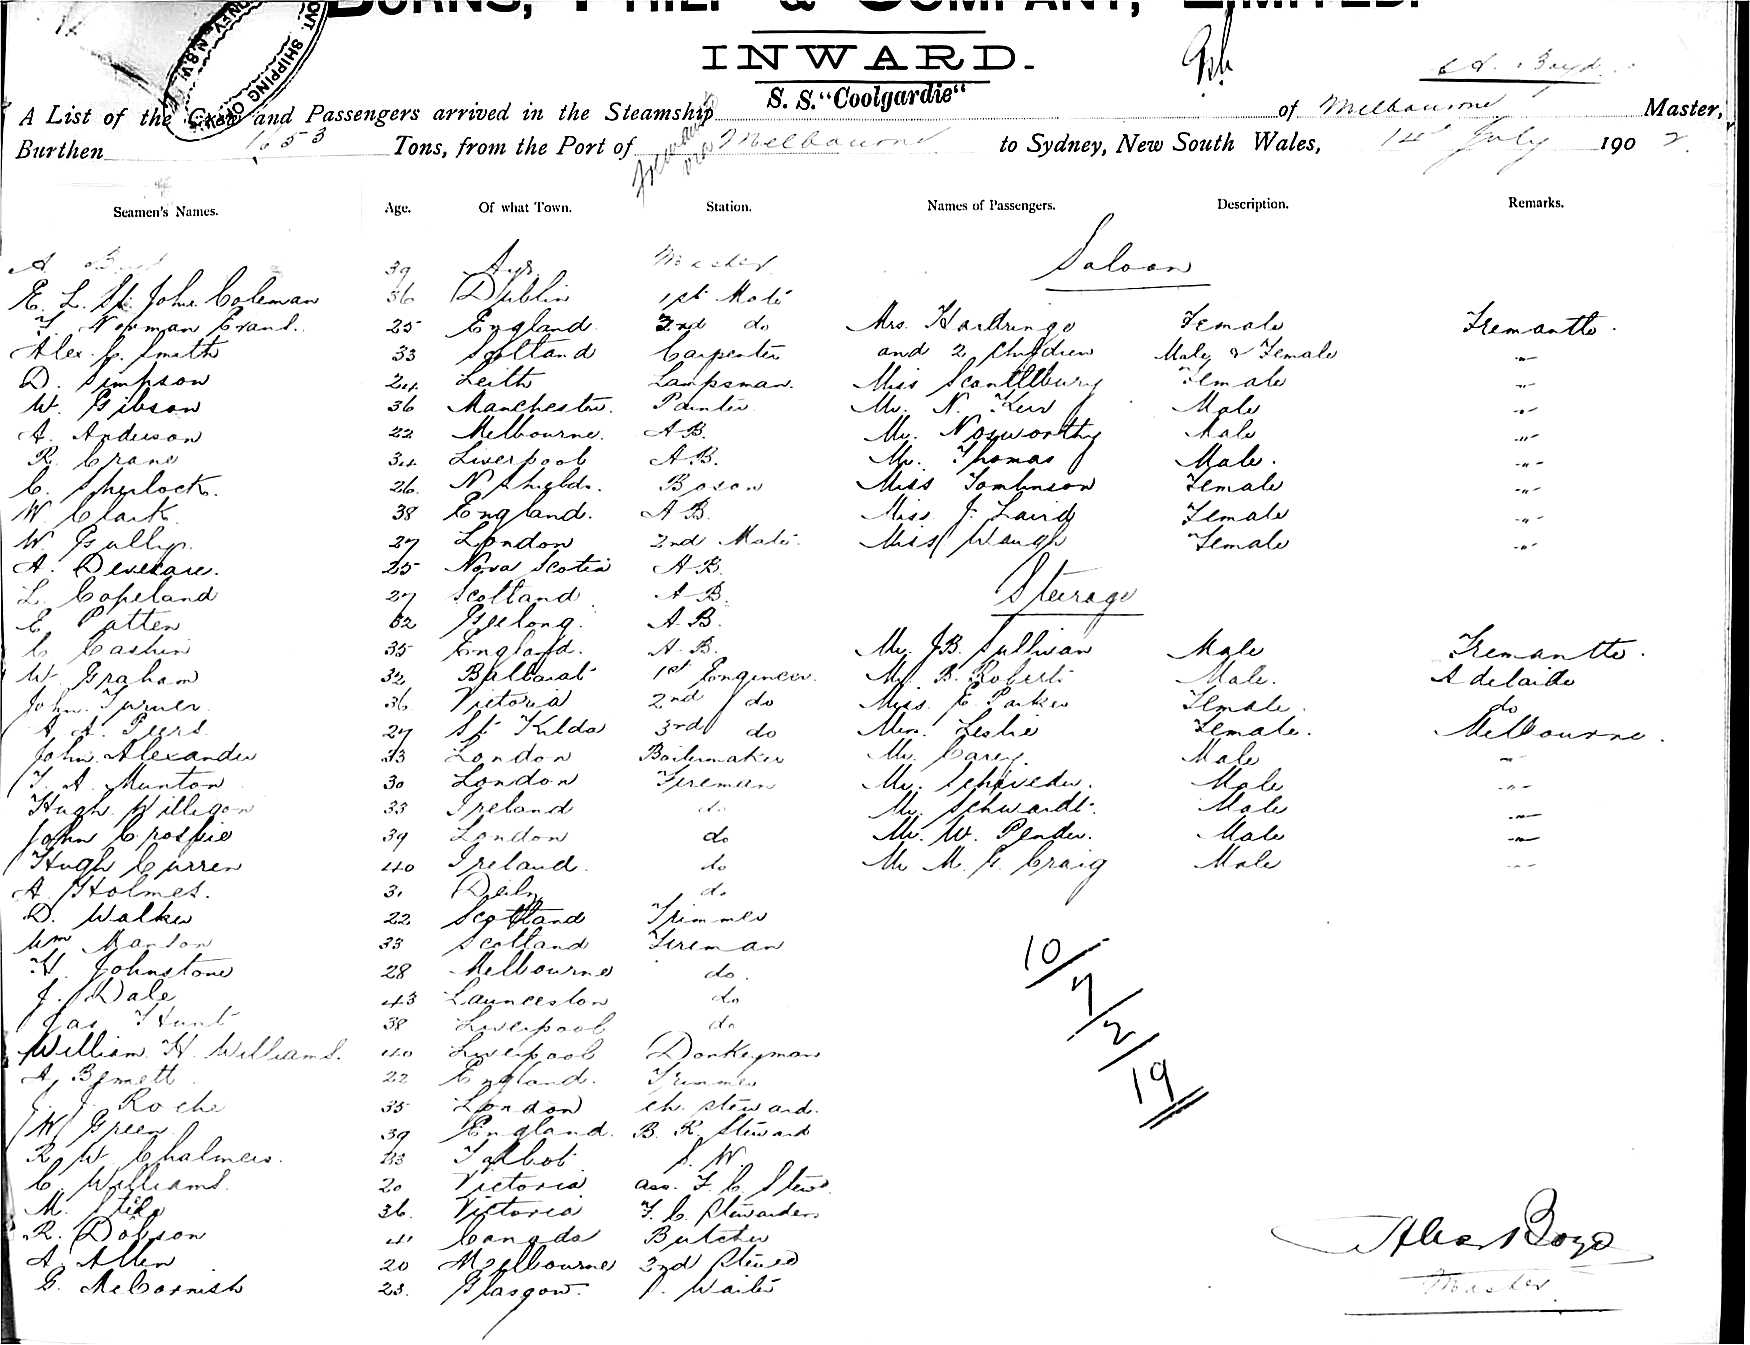 BURNS, PHILP & COMPANY, LIMITED.
INWARD.
A. Boyd
S. S. "Coolgardie"
A List of the Crew and Passengers arrived in the Steamship of Melbourne Master,
Burthen 1,053 Tons, from the Port of Fremantle via Melbourne to Sydney, New South Wales, 14th July 1902.
Seamen's Names. Age. Of what Town. Station. Names of Passengers. Description. Remarks.
A. Boyd 39 Ayr Master Saloon
E. L. St. John Coleman 36 Dublin 1st Mate
T. Norman Evans. 25 England 2nd do Mrs. Female Fremantle.
Alex. C. Smith 33 Scotland Carpenter and 2 Children Male & Female -"-
D. Simpson 24 Leith Lampsman. Miss Female -"-
W. Gibson 36 Manchester. Painter Mr. N. Kerr Male -"-
A. Anderson 22 Melbourne. A B. Mr. Nosworthy Male -"-
R. Crane 34 Liverpool A B. Mr. Thomas Male. -"-
C. Sherlock. 26. N Shields. Boson Miss Tomlinson Female -"-
W. Clark. 38 England. A B. Miss J. Laird Female -"-
W. 27 London 2nd Mate. Miss Waugh Female -"-
A. Devereare. 25 Nova Scotia A B.
L. Copeland 27 Scotland A B. Steerage
E. Patten 62 Geelong. A. B.
C Cashin 35 England. A. B. Mr. J.B. Sullivan Male Fremantle.
W. Graham 32 Ballarat 1st Engineer. Mr. B. Roberts Male. Adelaide
John. Turner. 36 Victoria 2nd do Miss. E. Parker Female. do
A. A. Peers. 27 St. Kilda 3rd do Mrs. Leslie Female. Melbourne.
John. Alexander 33 London Boilermaker Mr. Carey. Male -"-
T. A. Munton 30 London Fireman Mr. Male -"-
Hugh. Willigan 33 Ireland do Mr. Schwardt. Male -"-
John Crosbie 39 London do Mr. W. Pender. Male -"-
Hugh Curren 40 Ireland. do Mr M. G. Craig Male -"-
A. Holmes. 31 do
D. Walker 22 Scotland Trimmer
Wm 33 Scotland Fireman
H. Johnstone 28 Melbourne do.
J. Dale 43 Launceston do
Jas Hunt 38 Liverpool do
William. H. Williams. 40 Liverpool Donkeyman
A. Bennett 22 England. Trimmer
J. J. Roche 35 London ch. steward.
W. Green 39 England. B. R. Steward
R. W. Chalmers. 33 Talbot S. W.
C. Williams. 20 Victoria ass. F. C. Stew.
M. 36. Victoria F. C. Stewardess
R. Dobson 41 Canada Butcher
A. Allen 20 Melbourne 2nd Steward
G. McCormish 23. Glasgow. Waiter
10/7/2/19
Alex Boyd
Master